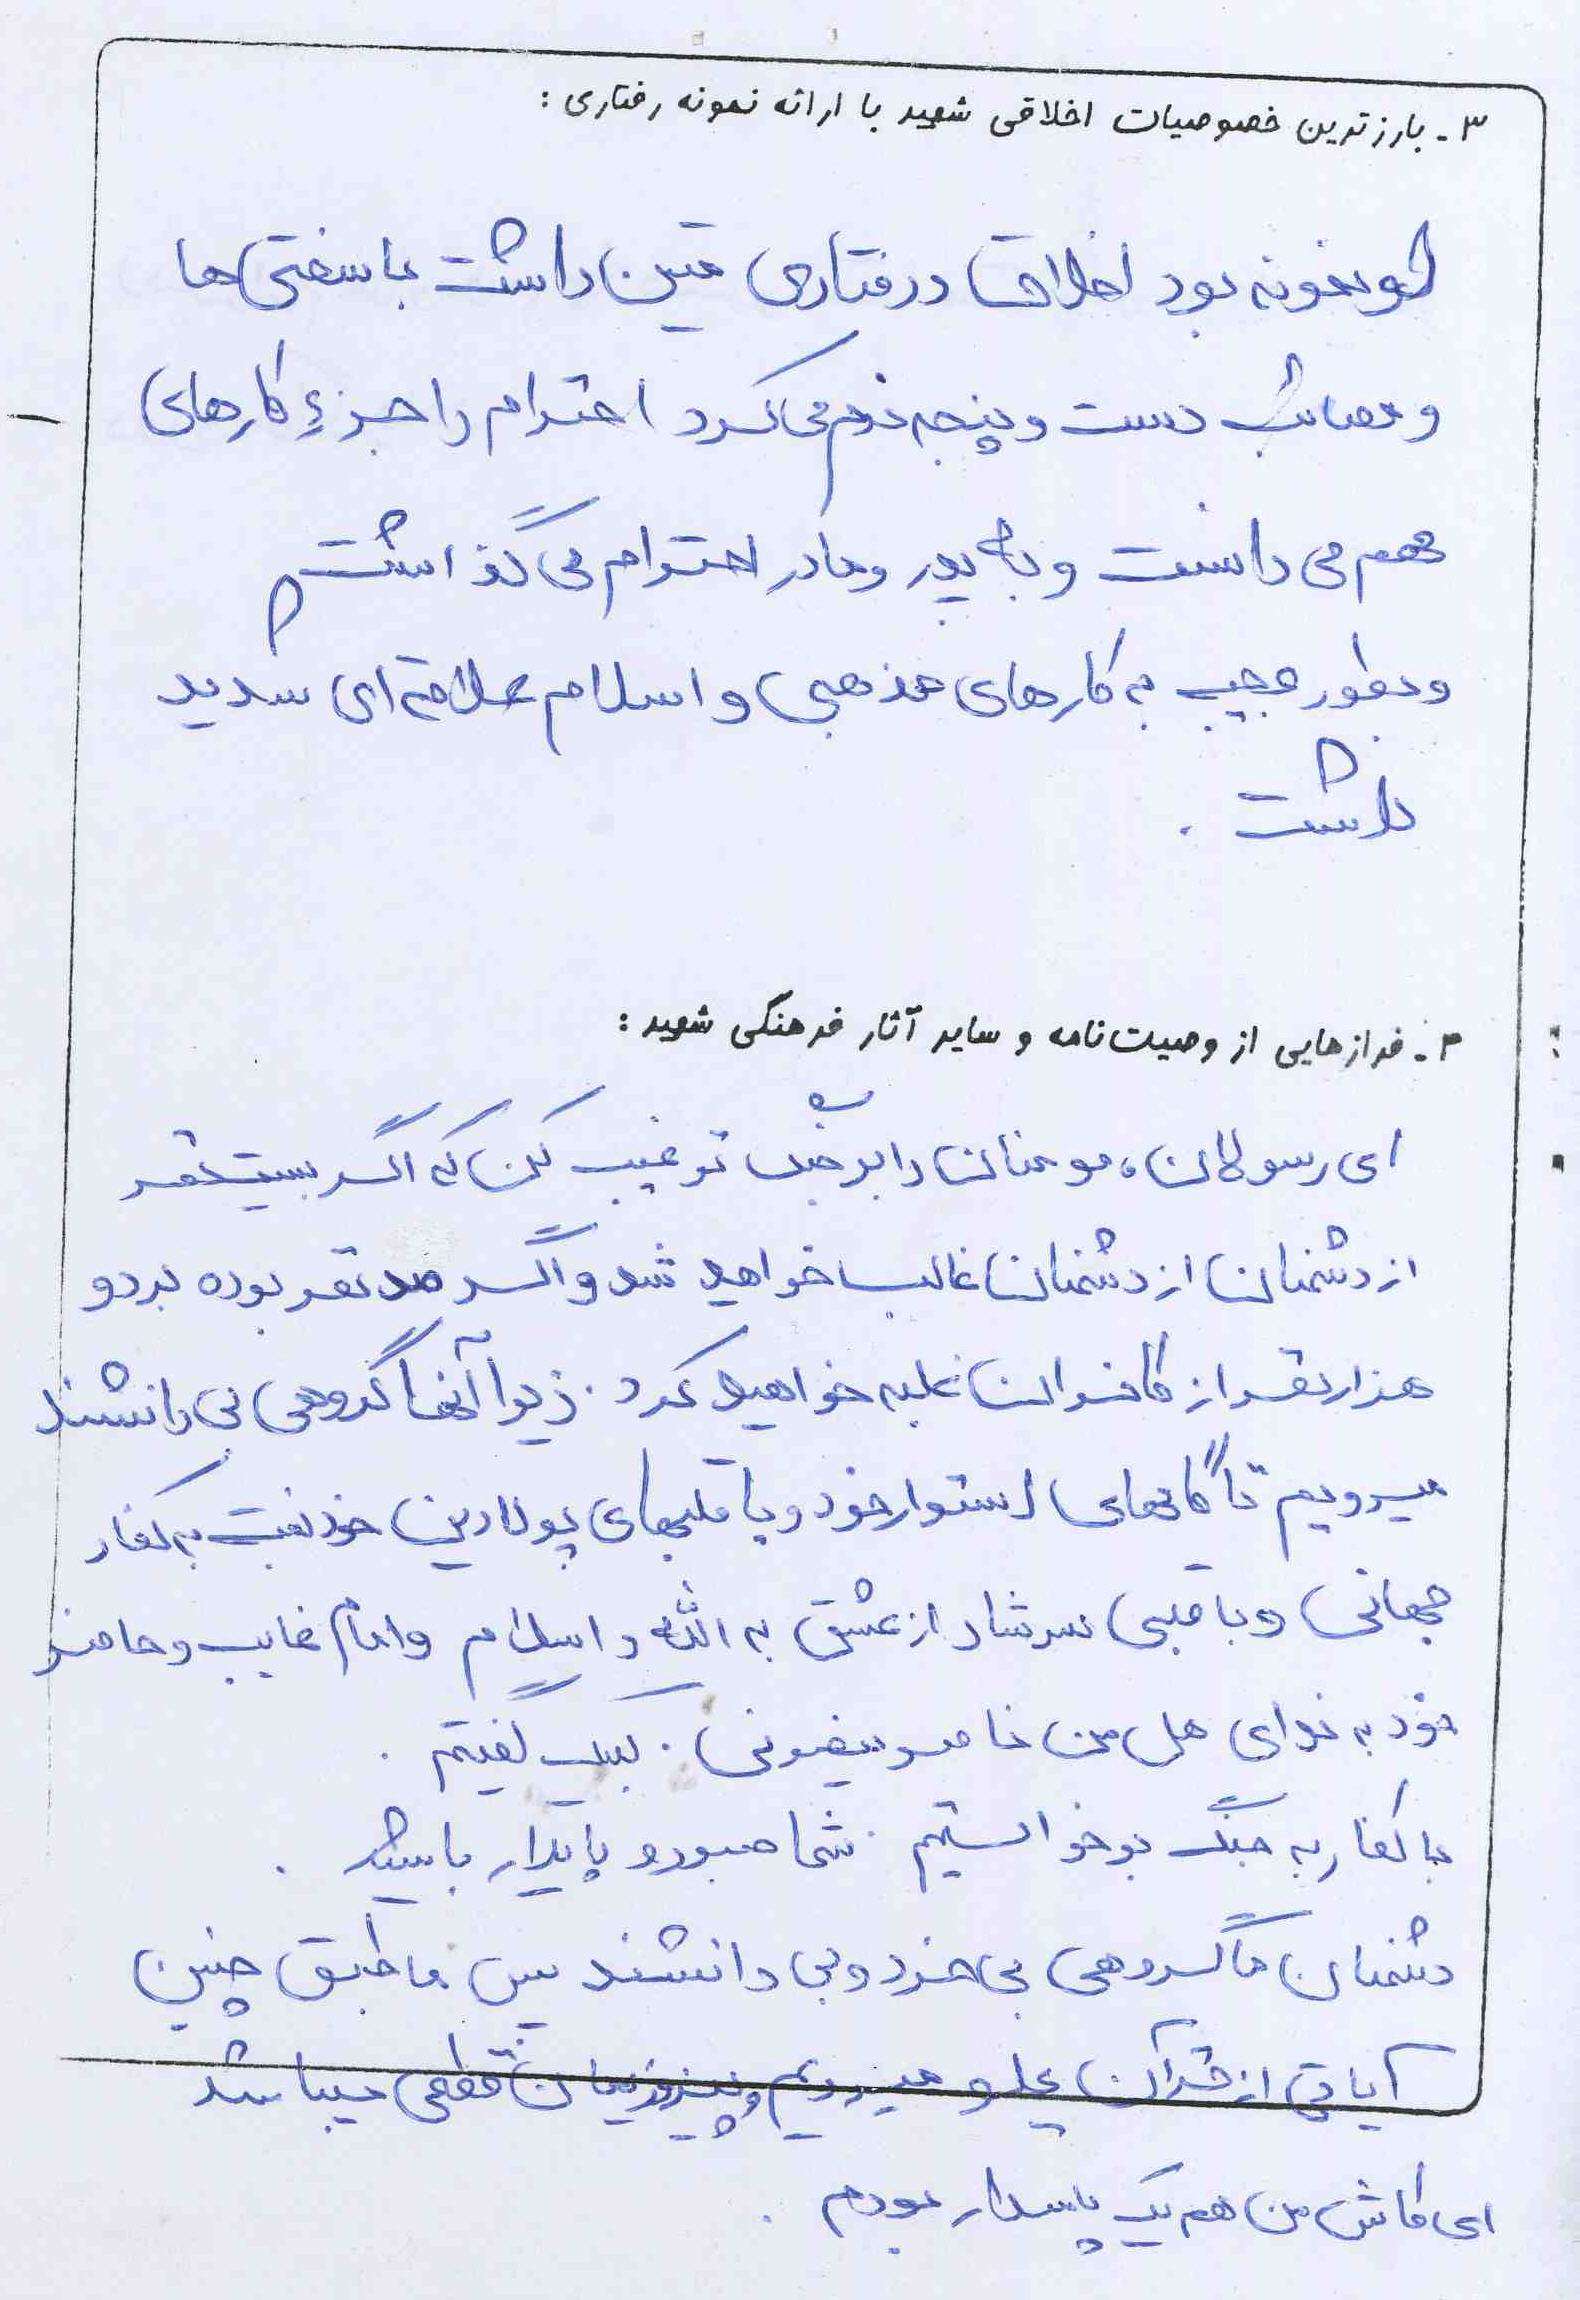 ۳ـ بارزترین خصوصیات اخلاقی شهید با ارائه نمونه رفتاری :
او نمونه بود اخلاق و رفتاری متین داشت با سختی ها
و مصائب دست و پنجه نرم می کرد احترام را جزءِ کارهای
مهم می دانست و به پدر و مادر احترام می گذاشت
و بطور عجیب به کارهای مذهبی و اسلام علاقه ای شدید
داشت .
۴ـ فرازهایی از وصیت‌نامه و سایر آثار فرهنگی شهید :
ای رسولان، مومنان را بر جنگ ترغیب کن که اگر بیست نفر
از دشمنان از دشمنان غالب خواهید شد و اگر صد نفر بوده بر دو
هزار نفر از کافران غلبه خواهید کرد . زیرا آنها گروهی بی دانشند
میرویم تا گامهای استوار خود و با قلبهای پولادین خود نسبت به کفار
جهانی و با قلبی سرشار از عشق به الله و اسلام و امام غایب و حاضر
خود به نوای هل من ناصر ینصرنی . لبیک گفتیم .
با کفار به جنگ برخواستیم . شما صبور و پایدار باشید .
دشمنان ما گروهی بی خرد و بی دانشند پس ما طبق چنین
آیاتی از قرآن بجلو میرویم و پیروزیمان قطعی میباشد
ای کاش من هم یک پاسدار بودم .